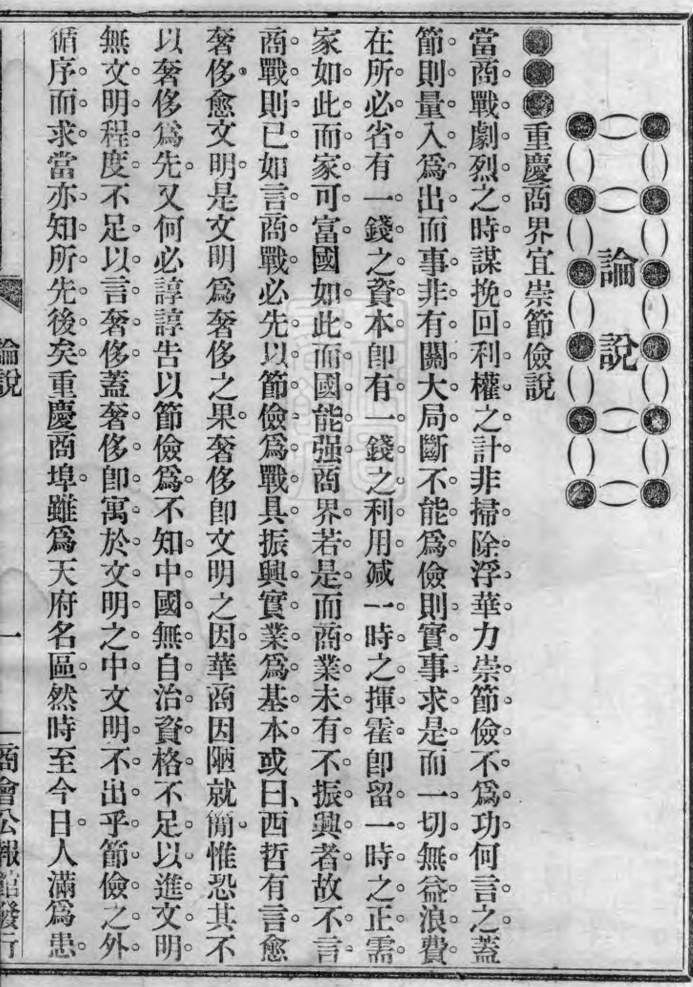 論說
重慶商界宜崇節儉說
當商戰劇烈之時。謀挽回利權之計。非掃除浮華力崇節儉不爲功。何言之。蓋
節則量入爲出。而事非有關大局斷不能爲。儉則實事求是。而一切無益浪費
在所必省。有一錢之資本。卽有一錢之利用。减一時之揮霍。卽留一時之正需。
家如此而家可富。國如此而國能强。商界若是而商業未有不振興者。故不言
商戰則已。如言商戰。必先以節儉爲戰具。振興實業爲基本。或曰、西哲有言。愈
奢侈。愈文明。是文明爲奢侈之果。奢侈卽文明之因。華商因陋就簡。惟恐其不
以奢侈爲先。又何必諄諄告以節儉爲。不知中國無自治資格。不足以進文明。
無文明程度。不足以言奢侈。蓋奢侈卽寓於文明之中。文明不出乎節儉之外。
循序而求。當亦知所先後矣。重慶商埠。雖爲天府名區。然時至今日。人滿爲患。
論說
一
商會公報館發行